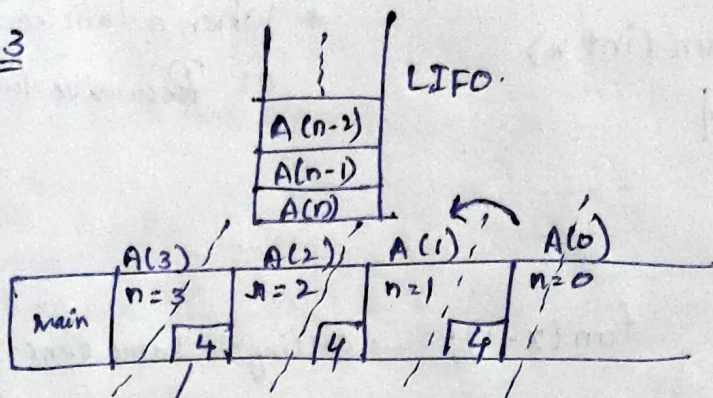 3
LIFO.
A(n-2)
A(n-1)
A(n)
A(3) A(2) A(1) A(0)
main n=3 n=2 n=1 n=0
4 4 4